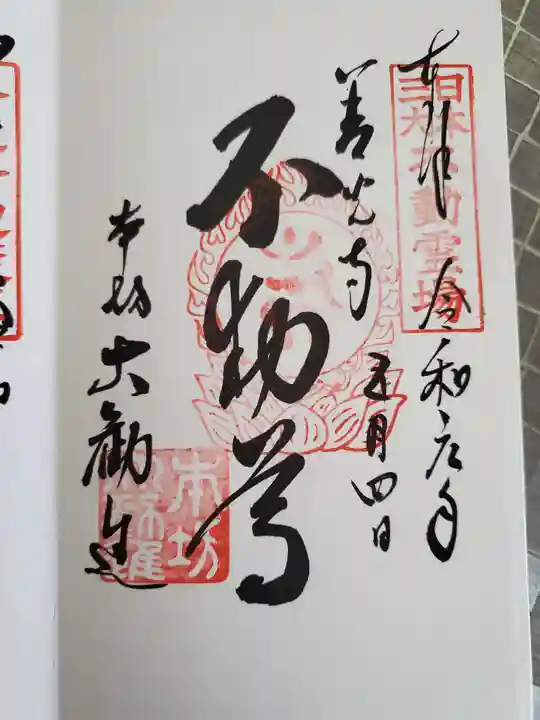 奉拝
日本
三大不動霊場
令和元年
五月四日
善光寺
不動尊
本坊 大勧進
本坊